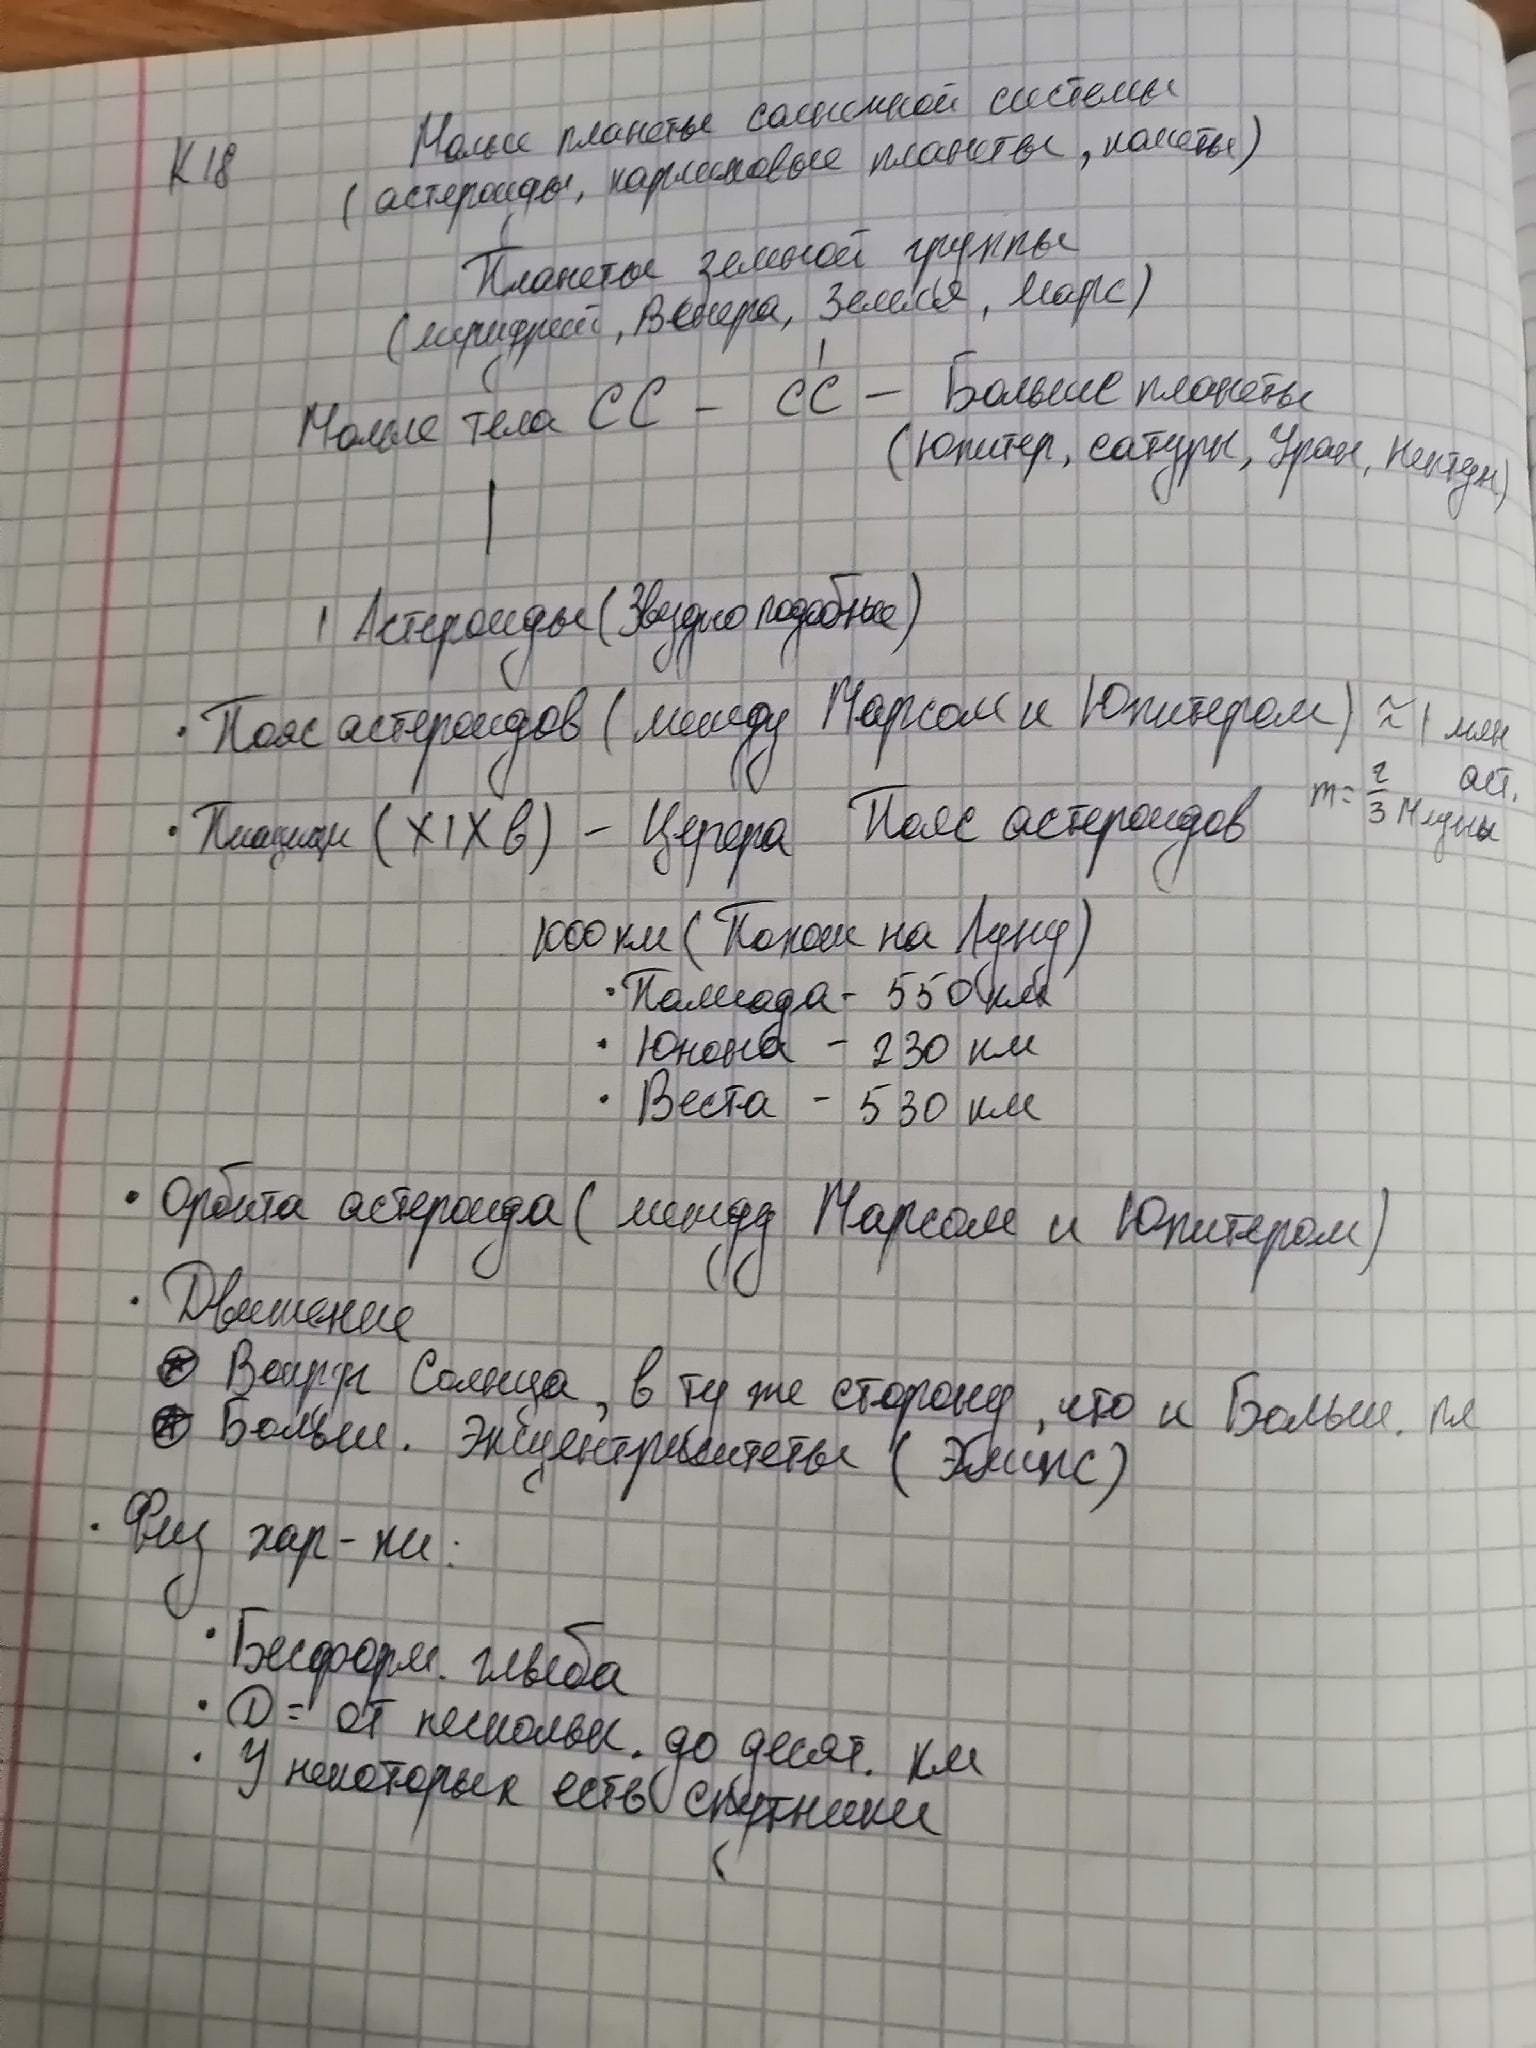 К 18
Малые планеты солнечной системы
(астероиды, карликовые планеты, кометы)
Планеты земной группы
(меркурий, Венера, Земля, Марс)
Малые тела СС – СС – Большие планеты
(Юпитер, сатурн, Уран, Нептун)
1 Астероиды (Звездно подобные)
· Пояс астероидов (между Марсом и Юпитером) ≈ 1 млн аст.
m = 2/3 М луны
· Пиацци (XIX в) – Церера Пояс астероидов
1000 км (Похож на Луну)
· Паллада - 550 км
· Юнона - 230 км
· Веста - 530 км
· Орбита астероида (между Марсом и Юпитером)
· Движение
Вокруг Солнца, в ту же сторону, что и Больш. пл
Больш. эксцентриситеты (Элипс)
· Физ хар-ки:
· Бесформ. глыба
· D = от нескольк. до десят. км
· У некоторых есть спутники